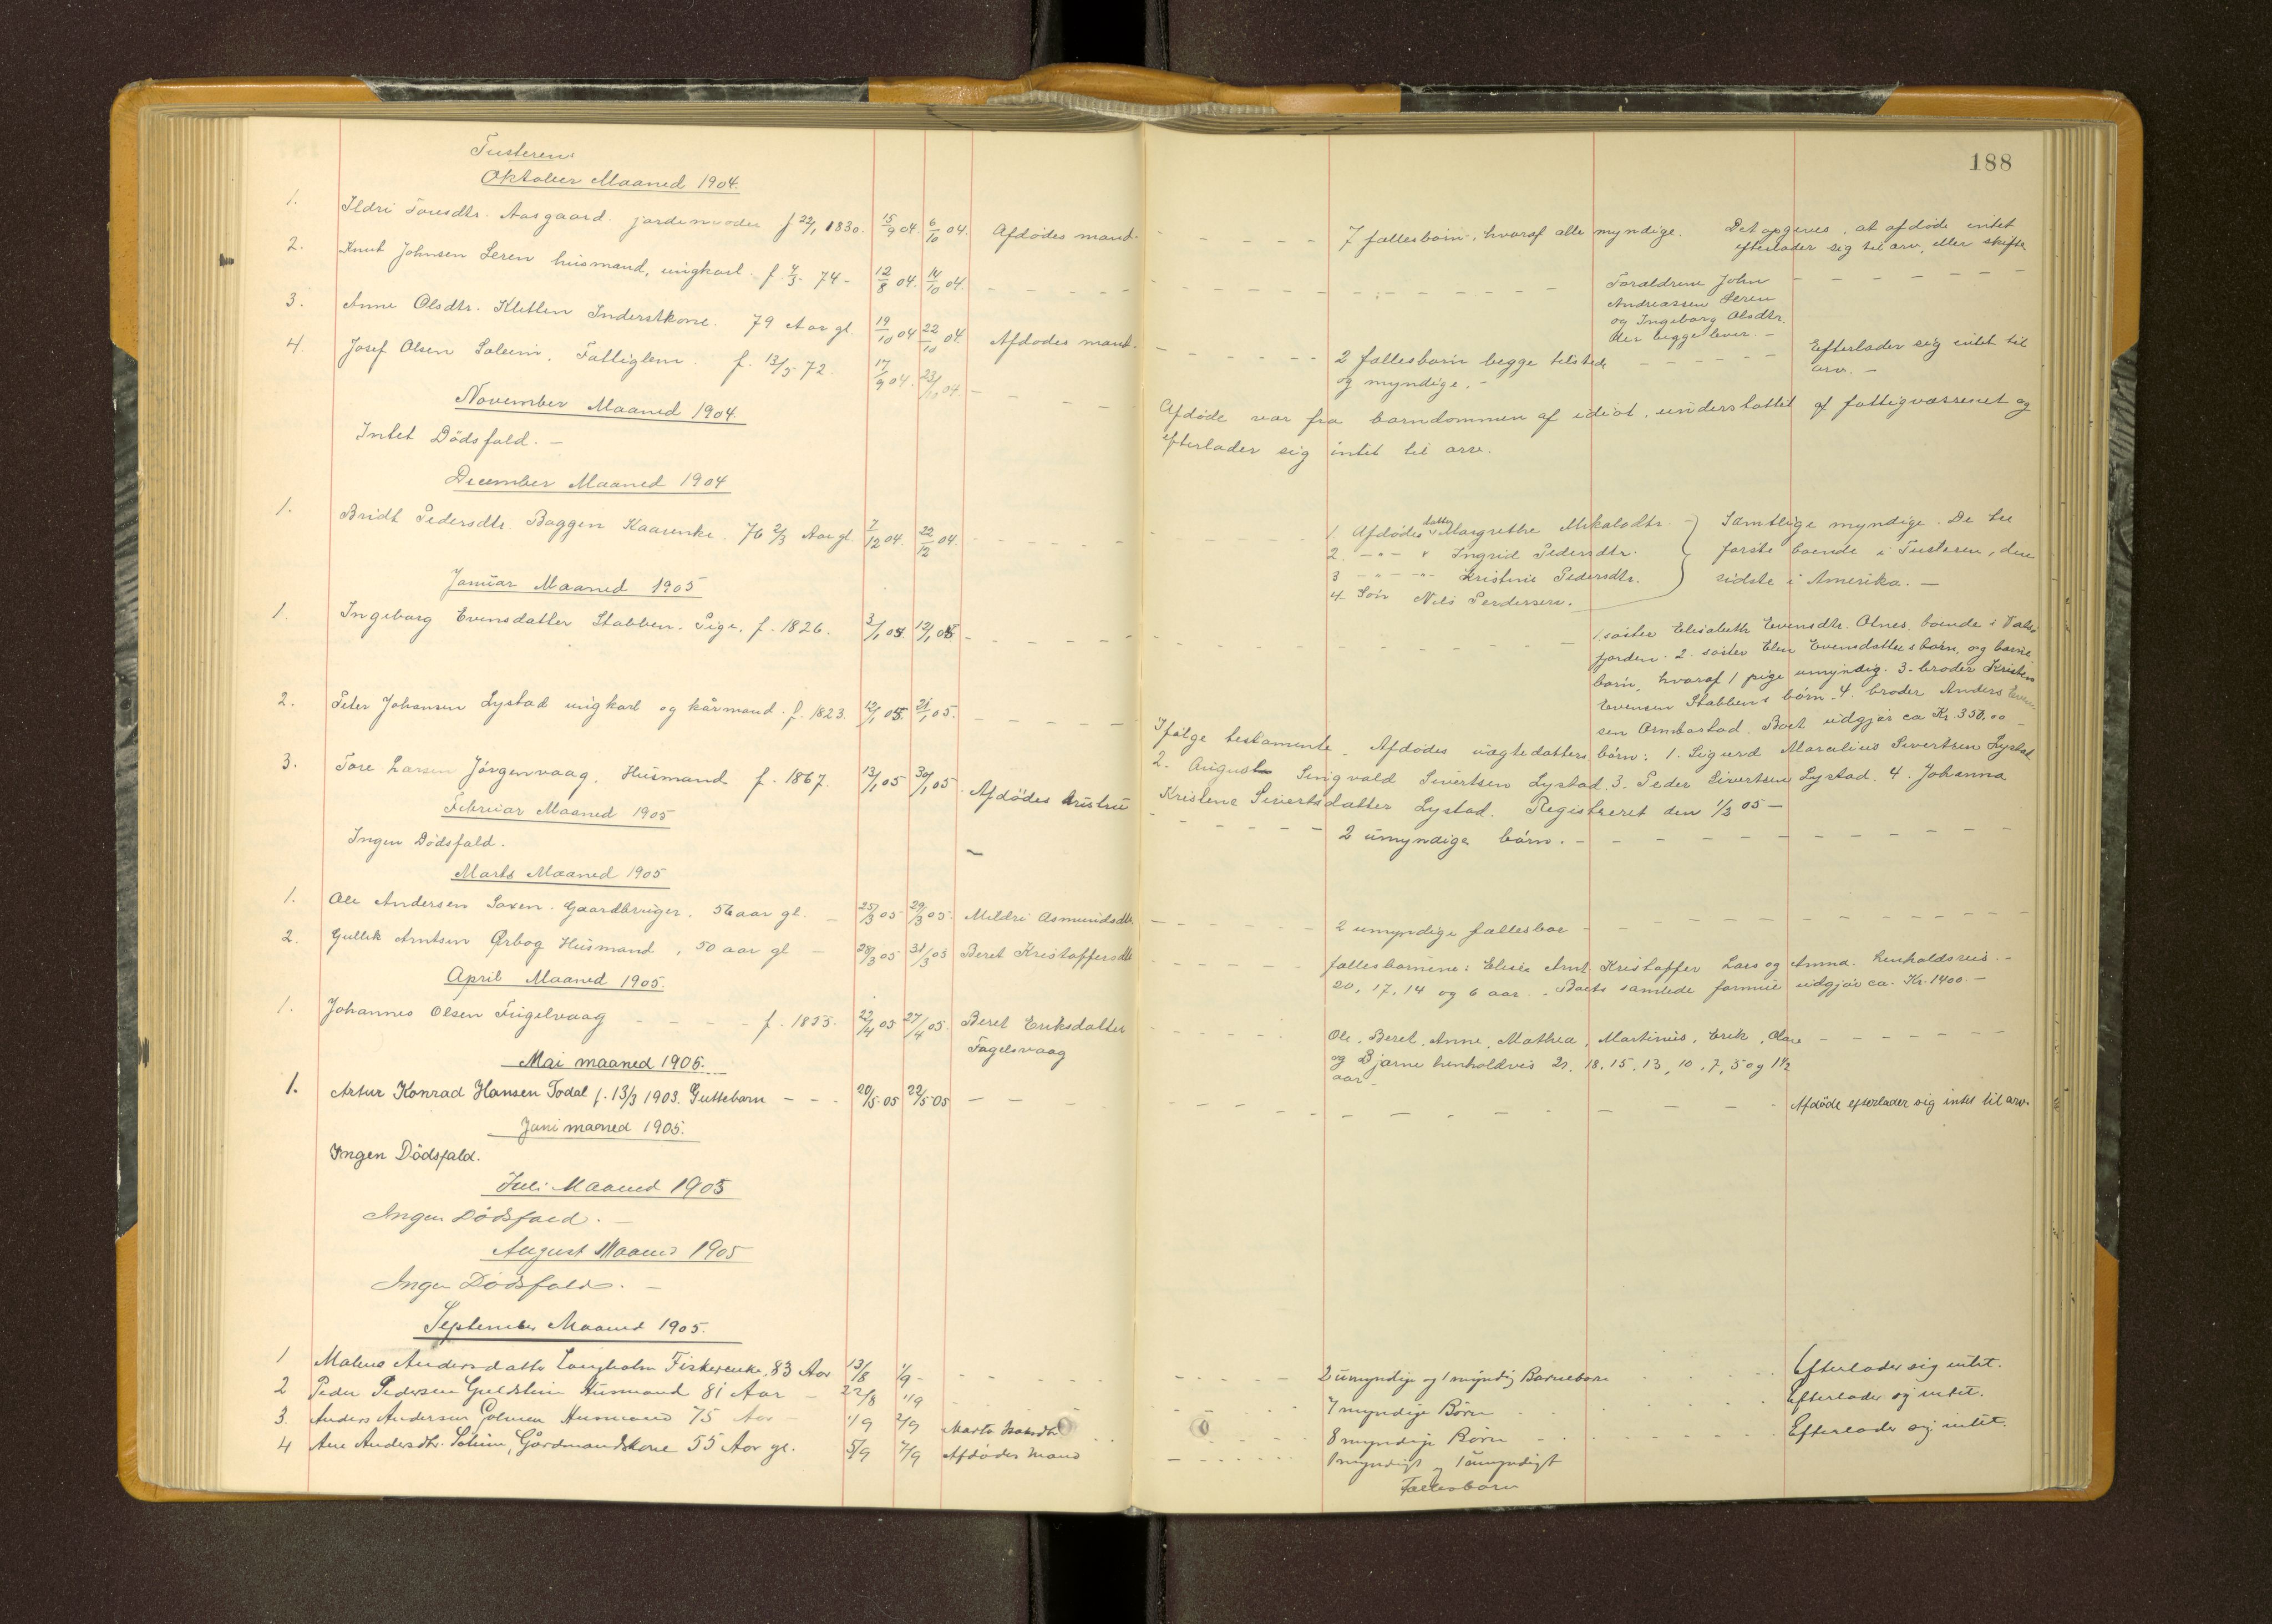 188
Tusteren
Oktober Maaned 1904.
1. Ildri Toresdtr. Aasgaard. jordemoder f 22/1 1830. 15/9 04. 6/10 04. Afdødes mand. 7 fællesbørn, hvoraf alle myndige. Det opgives, at afdøde intet
efterlader sig til arv, eller skifte
2. Knut Johnsen Leren husmand, ungkarl f. 4/3 74 - 12/8 04. 14/10 04.
Forældrene John
Andreassen Leren
og Ingeborg Olsdtr.
der begge lever. -
3. Anne Olsdtr. Kletten Inderstkone. 79 Aar gl. 19/10 04 22/10 04. Afdødes mand. 2 fællesbørn begge tilstede Efterlader sig intet til
og myndige. - arv. -
4. Josef Olsen Soleim. Fattiglem. f. 13/5 72. 17/9 04. 23/10 04.
Afdøde var fra barndommen af idiot, understøttet af fattigvæsenet og
efterlader sig intet til arv.
November Maaned 1904.
Intet Dödsfald. -
December Maaned 1904
1. Bridt Pedersdtr. Baggen Kaarenke. 76 2/3 Aar gl. 7/12 04. 22/12 04.
1. Afdødes datter Margrethe Mikalsdtr. - Samtlige myndige. De tre
2. - " - " Ingrid Pedersdtr. første boende i Tusteren, den
3 - " - " - Kristine Pedersdtr. sidste i Amerika. -
4. Sön Nils Pedersen.
Januar Maaned 1905
1. Ingeborg Evensdatter Stabben. Pige. f. 1826. 3/1 05. 12/1 05 -
1. søster Elisabeth Evensdtr. Olnes, boende i Valsö
fjorden. 2. søster Elen Evensdatters børn, og barne
børn, hvoraf 1 pige umyndig. 3. broder Kristen
Evensen Stabbens børn. 4. broder Anders Even
sen Ormbostad. Boet udgjør ca Kr. 350,00 -
2. Peter Johansen Lystad ungkarl og kårmand. f. 1823. 12/1 05. 21/1 05.
Ifølge testamente. Afdødes uægte datters børn: 1. Sigurd Marelius Sivertsen Lystad
2. August Singvald Sivertsen Lystad. 3. Peder Sivertsen Lystad. 4. Johanna
Kristene Sivertsdatter Lystad. Registreret den 1/3 05 -
3. Tore Larsen Jørgenvaag. Husmand f. 1867. 13/1 05 30/1 05. Afdødes hustru 2 umyndige børn. -
Februar Maaned 1905
Ingen Dödsfald.
Marts Maaned 1905
1. Ole Andersen Saxen. Gaardbruger. 56 aar gl. - 25/3 05 29/3 05. Mildri Asmundsdtr. 2 umyndige fællesbør -
2. Gullik Arntsen Ørbog Husmand, 50 aar gl - 28/3 05 31/3 05 Beret Kristoffersdtr fællesbørnene: Elisis Arnt. Kristoffer Lars og Anna. henholdsvis. -
20, 17, 14 og 6 aar. - Boets samlede formue udgjør ca. Kr. 1400. -
April Maaned 1905.
1. Johannes Olsen Fugelvaag - - - - f. 1855. 22/4 05 27/4 05. Beret Eriksdatter
Fugelsvaag
Ole, Beret, Anne, Mathea, Martinus, Erik, Olav
og Bjarne henholdvis 21, 18, 15, 13, 10, 7, 5 og 1 1/2
aar -
Mai maaned 1905.
1. Artur Konrad Hansen Todal f. 13/3 1903. Guttebarn - - - 20/5 05 22/5 05 - Afdøde efterlader sig intet til arv.
Juni maaned 1905.
Ingen Dödsfald.
Juli Maaned 1905
Ingen Dödsfald. -
August Maaned 1905
Ingen Dödsfald. -
September Maaned 1905.
1 Malene Andersdatter Langholm Fiskerenke, 83 Aar 13/8 1/9 - 2 umyndige og 1 myndig Barnebarn Efterlader sig intet.
2 Peder Pedersen Guldstein Husmand 81 Aar - 22/8 1/9 7 myndige Børn Efterlader sig intet.
3. Anders Andersen Solmen Husmand 75 Aar - 1/9 2/9 Marta 8 myndige Børn Efterlader sig intet.
4 Ane Andersdtr. Soleim, Gårdmandskone 55 Aar gl. 5/9 7/9 Afdødes Mand 1 myndigt og 1 umyndigt
Fællesbørn